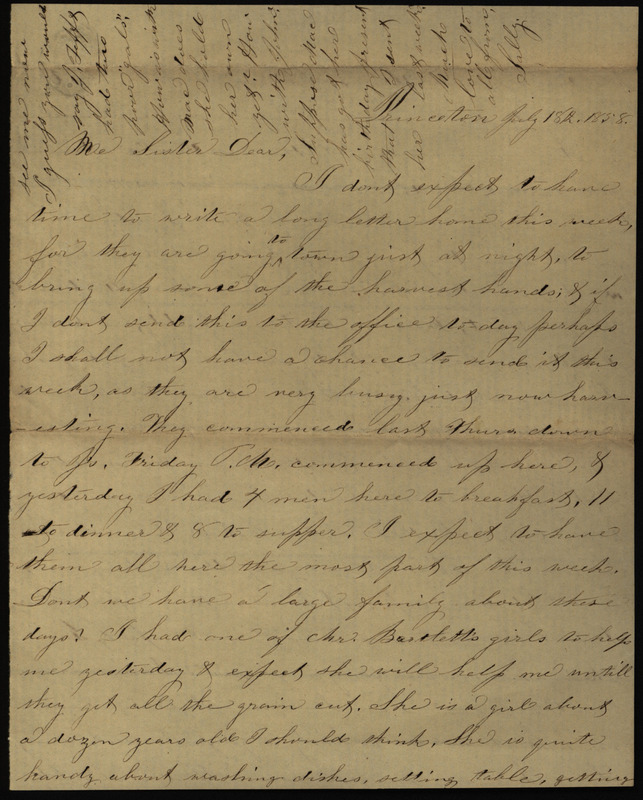 Princeton July 18th. 1858.
My Sister Dear,
I dont expect to have
time to write a long letter home this week,
for they are going to town just at night, to
bring up some of the harvest hands; & if
I dont send this to the office to-day perhaps
I shall not have a chance to send it this
week, as they are very busy just now harv-
-esting. They commenced last Thurs. down
to Js. Friday P.M. commenced up here, &
yesterday I had 4 men here to breakfast, 11
to dinner & 8 to supper. I expect to have
them all here the most part of this week.
Dont we have a large family about these
days? I had one of Chr. Bartletts girls to help
me yesterday & expect she will help me untill
they get all the grain cut. She is a girl about
a dozen years old I should think. She is quite
handy about washing dishes, setting table, getting
see me now
I guess you would
say I
had two
your
Mae does
she hold
her own
yet? How
with
Suppose Mae
has got her
birthday present
that I sent
her last week.
Much
love to
all from,
Sally.